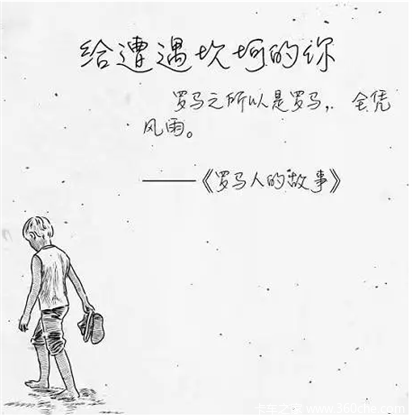 给遭遇坎坷的你
罗马之所以是罗马,全凭
风雨。
——《罗马人的故事》